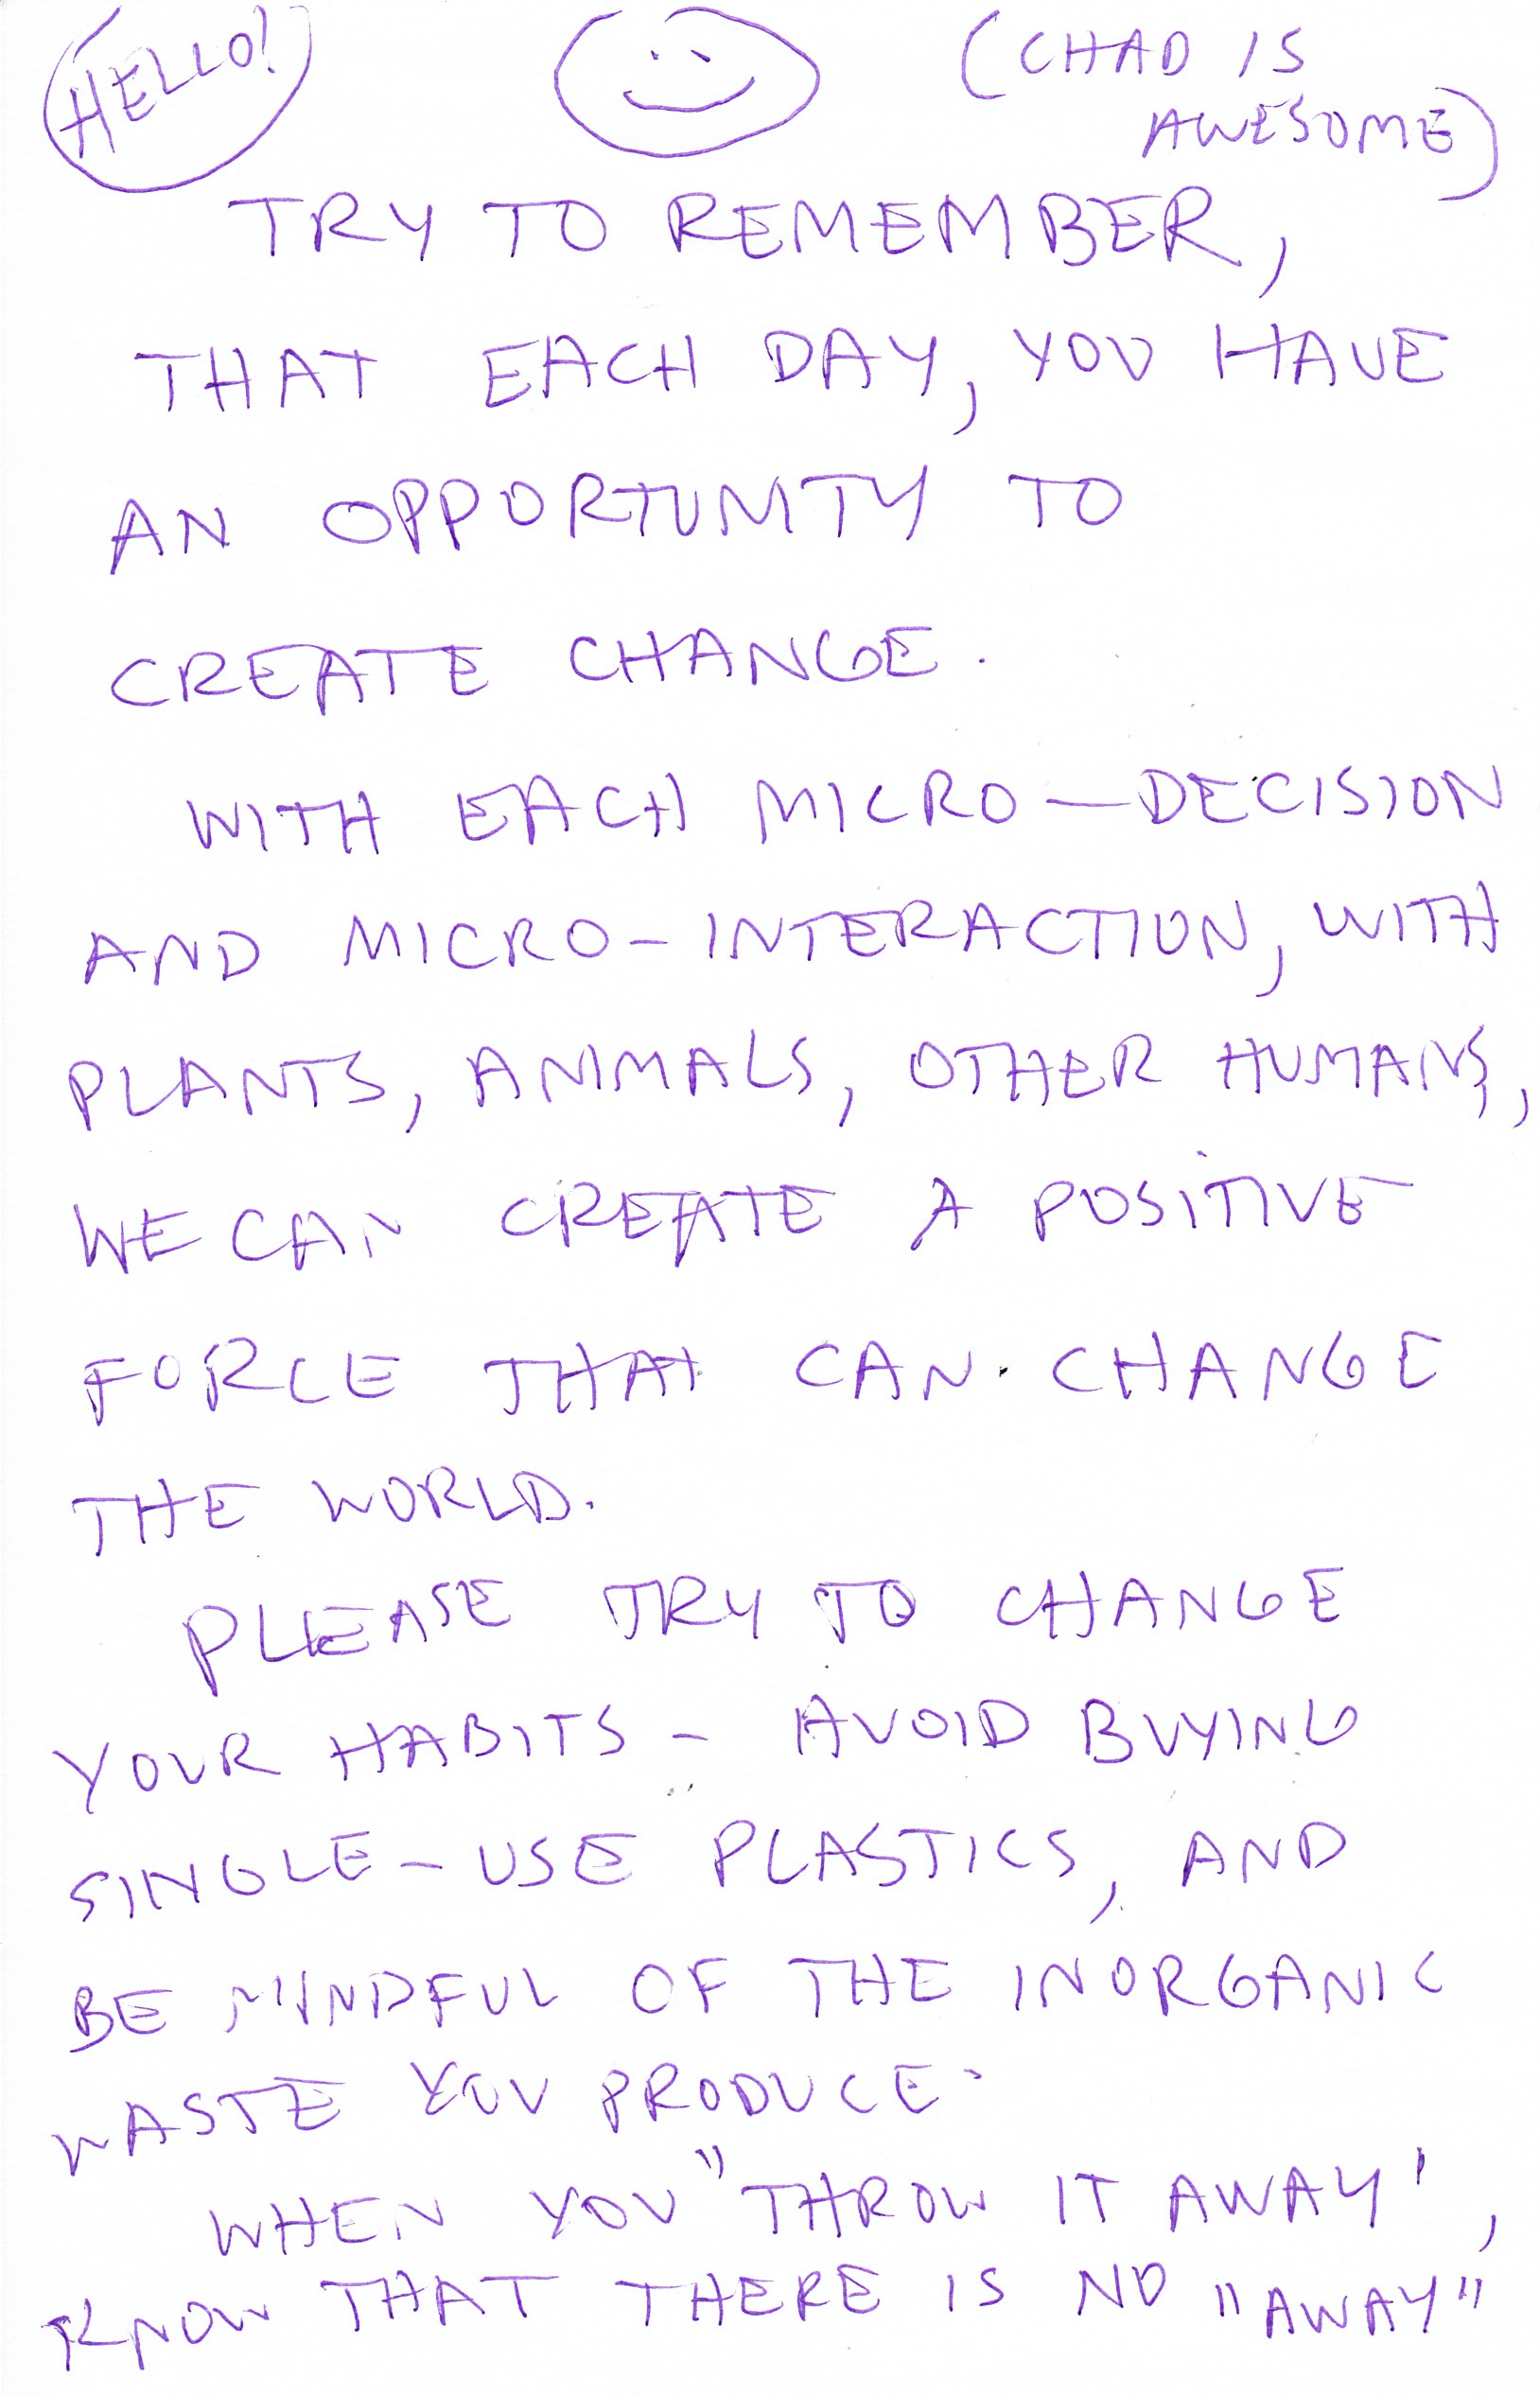 HELLO!
(CHAD IS
AWESOME)
TRY TO REMEMBER,
THAT EACH DAY, YOU HAVE
AN OPPORTUNITY TO
CREATE CHANGE.
WITH EACH MICRO-DECISION
AND MICRO-INTERACTION, WITH
PLANTS, ANIMALS, OTHER HUMANS,
WE CAN CREATE A POSITIVE
FORCE THAT CAN CHANGE
THE WORLD.
PLEASE TRY TO CHANGE
YOUR HABITS - AVOID BUYING
SINGLE-USE PLASTICS, AND
BE MINDFUL OF THE INORGANIC
WASTE YOU PRODUCE.
WHEN YOU "THROW IT AWAY',
KNOW THAT THERE IS NO "AWAY"